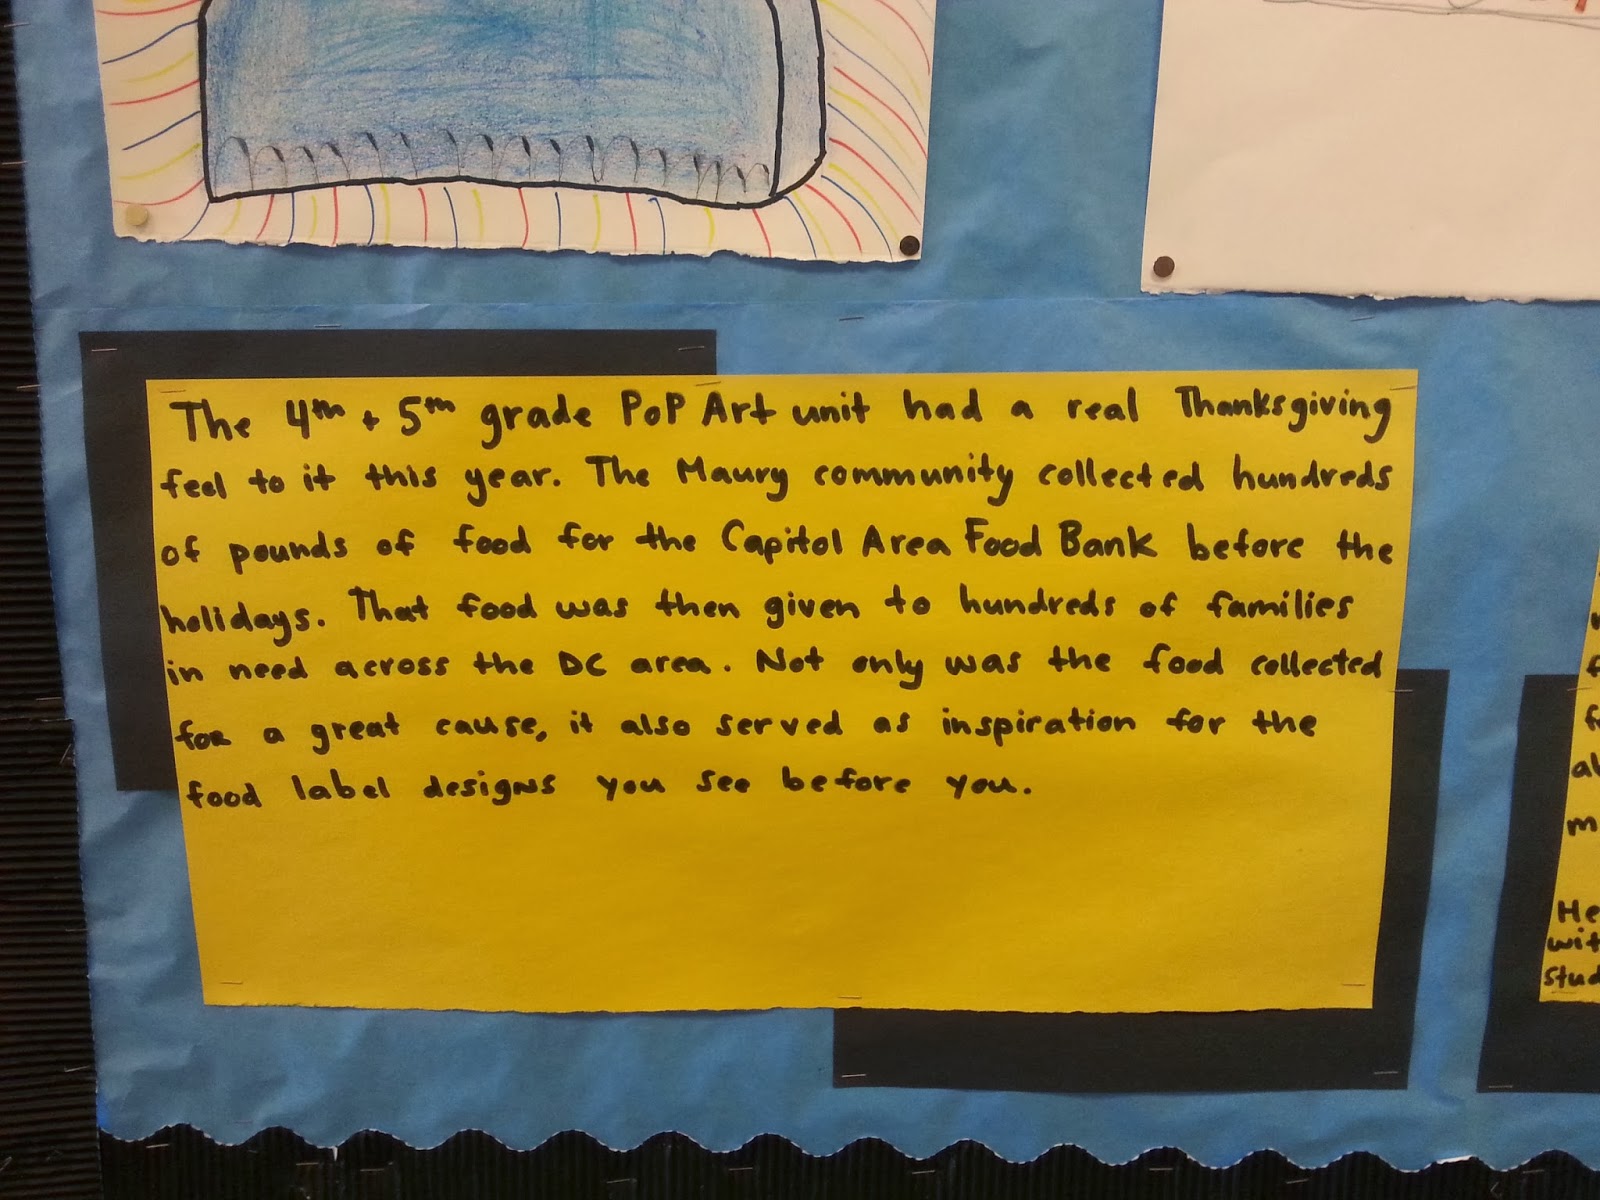 The 4th + 5th grade PoP Art unit had a real Thanksgiving
feel to it this year. The Maury community collected hundreds
of pounds of food for the Capitol Area Food Bank before the
holidays. That food was then given to hundreds of families
in need across the DC area. Not only was the food collected
for a great cause, it also served as inspiration for the
food label designs you see before you.
He
wit
stud